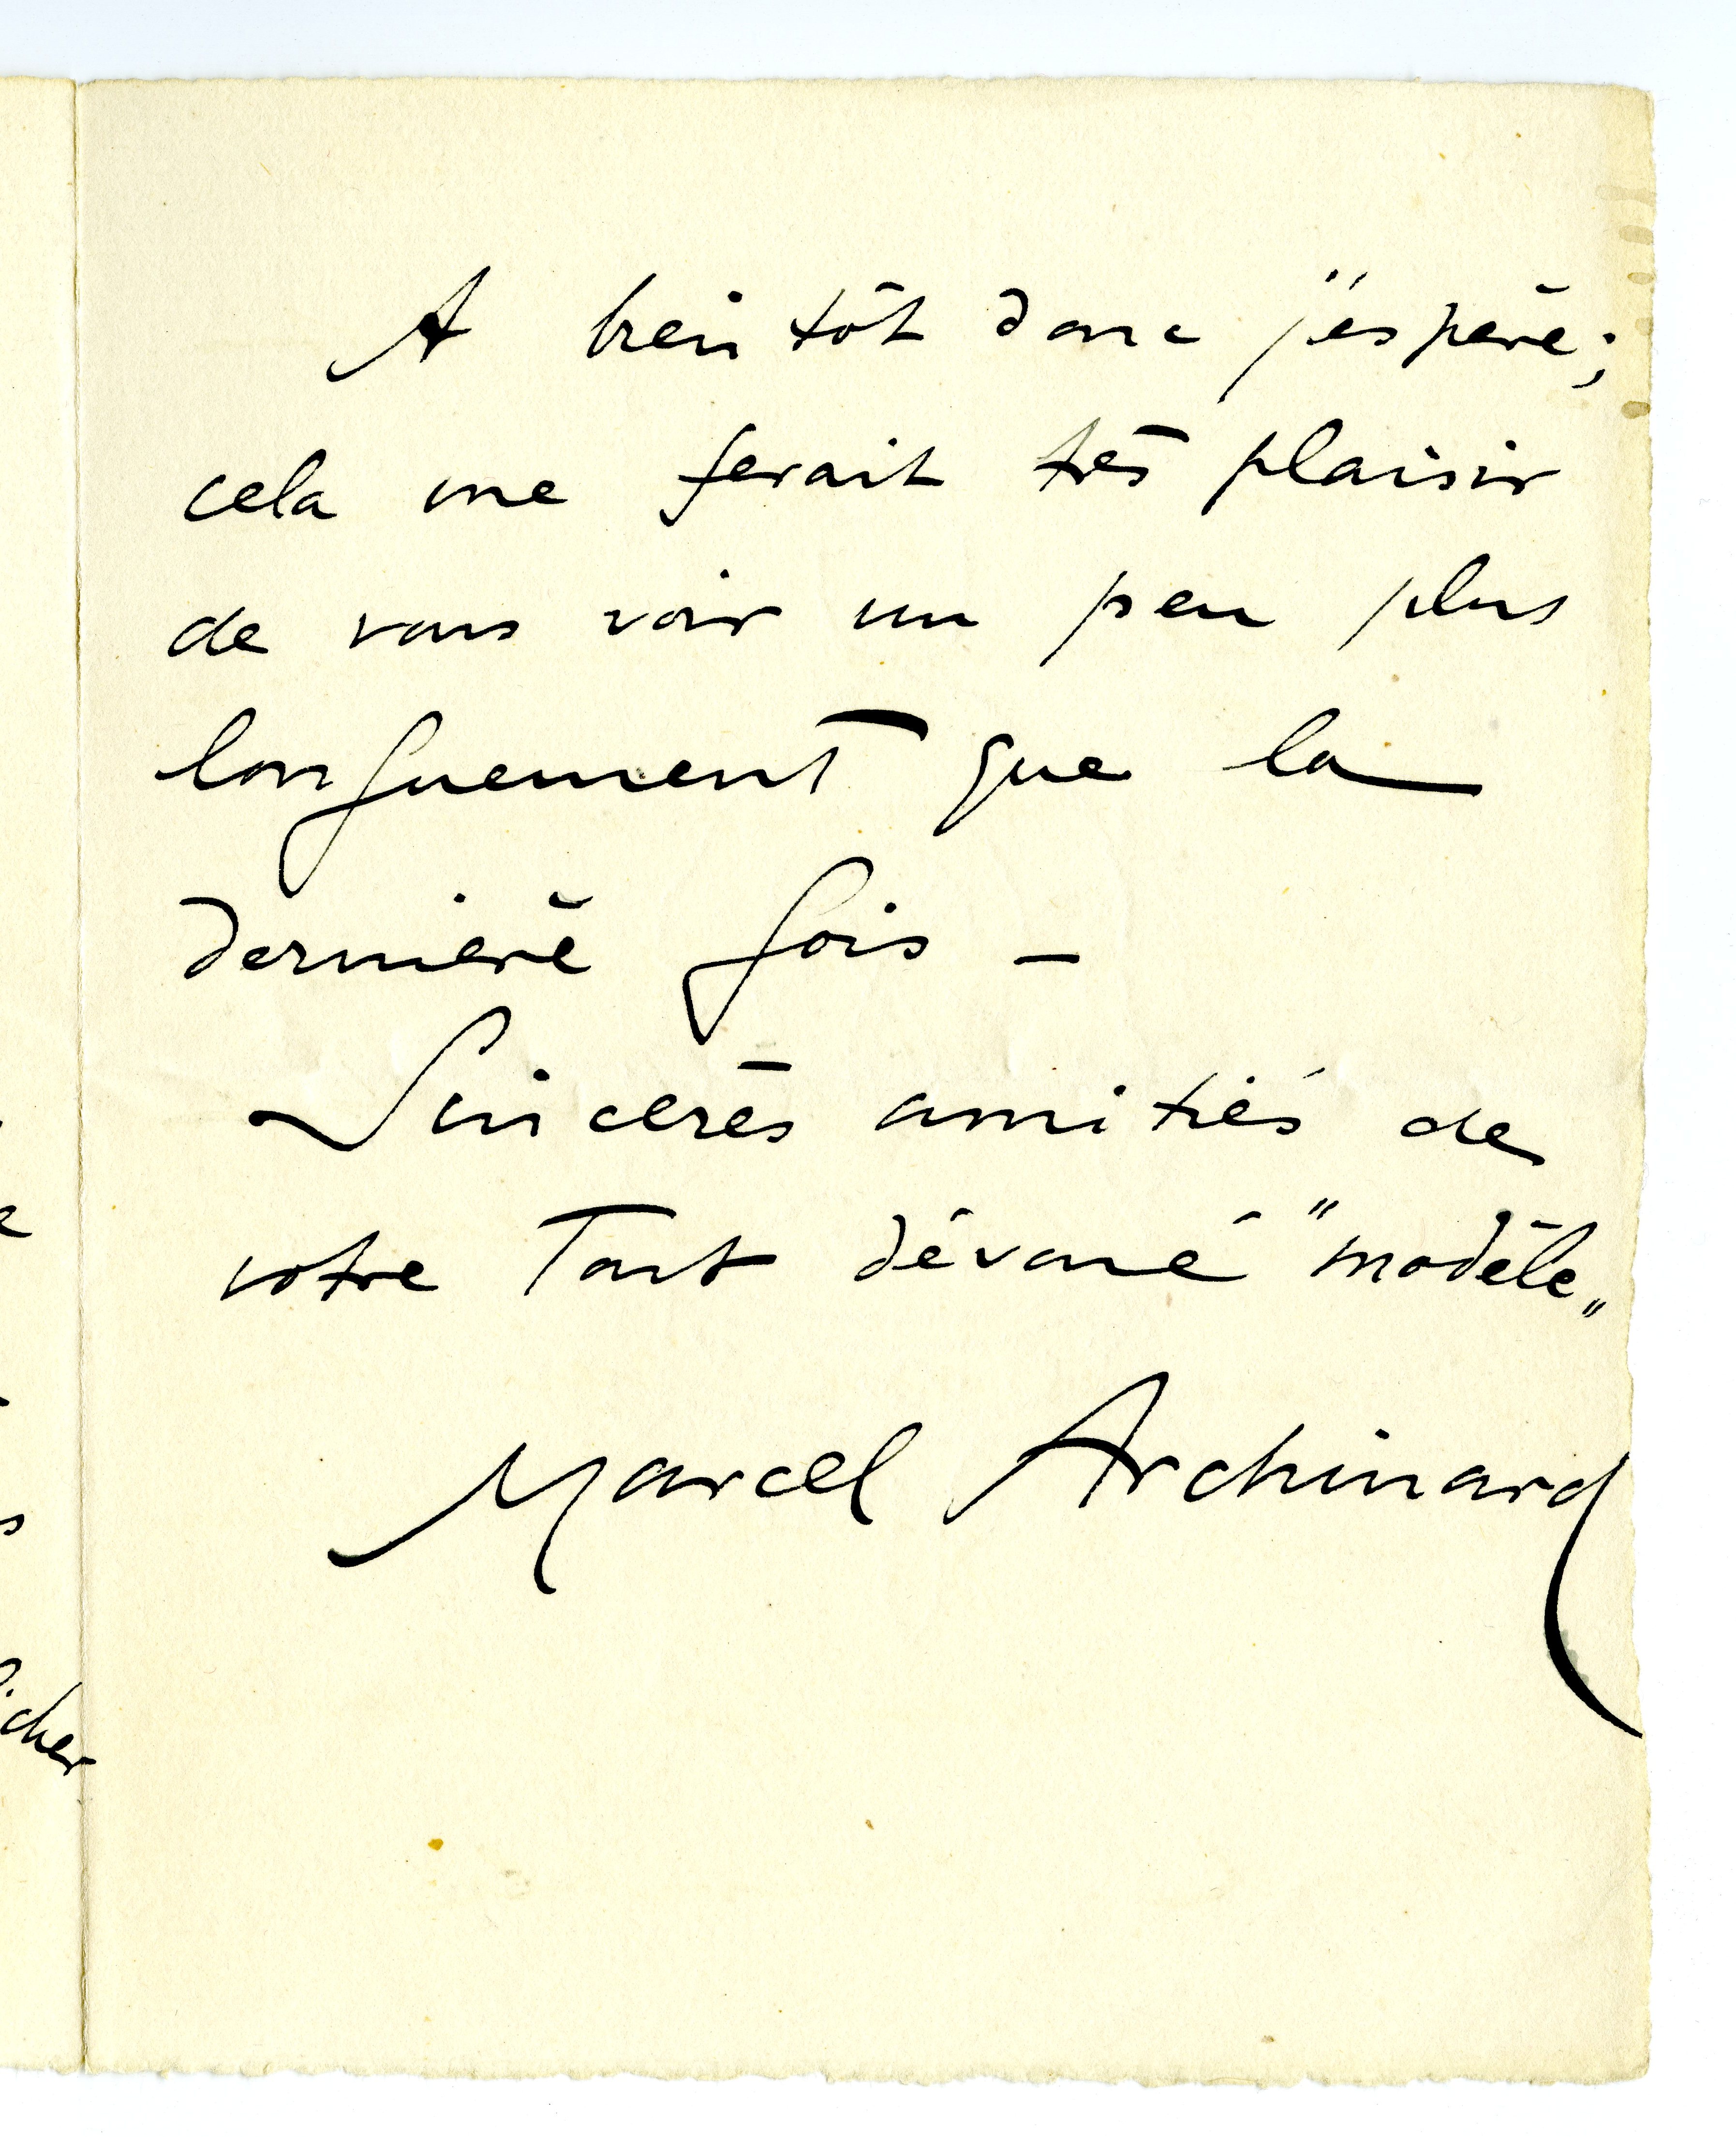 A bientôt donc j'espère ;
cela me ferait très plaisir
de vous voir un peu plus
longuement que la
dernière fois —
Sincères amitiés de
votre tout dévoué "modèle"
Marcel Archinard